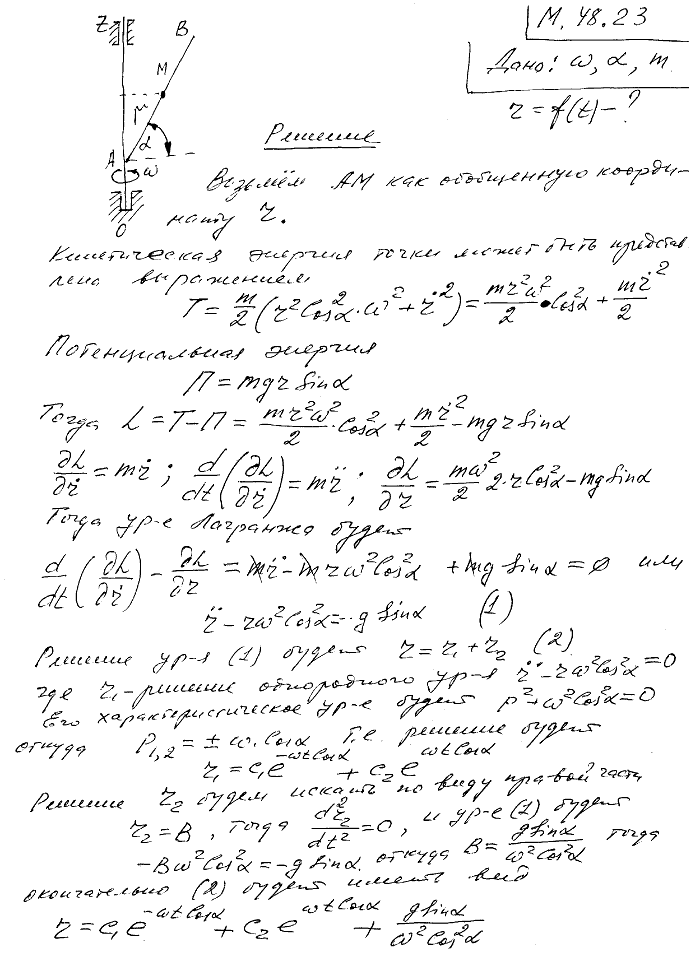 М. 48.23
Дано: ω, α, m
r = f(t) - ?
Z
B
M
r
α
A
ω
O
Решение
Возьмём AM как обобщенную коорди-
нату r.
Кинетическая энергия точки может быть представ-
лена выражением
T = m/2 (r² Cos²α · ω² + ṙ²) = mr²ω²/2 · Cos²α + mṙ²/2
Потенциальная энергия
П = mgr Sinα
Тогда L = T - П = mr²ω²/2 · Cos²α + mṙ²/2 - mgr Sinα
∂L/∂ṙ = mṙ ; d/dt (∂L/∂ṙ) = mr̈ ; ∂L/∂r = mω²/2 2·r Cos²α - mg Sinα
Тогда ур-е Лагранжа будет
d/dt (∂L/∂ṙ) - ∂L/∂r = mr̈ - mrω² Cos²α + mg Sinα = 0 или
r̈ - rω² Cos²α = -g Sinα (1)
Решение ур-я (1) будет r = r₁ + r₂ (2)
где r₁ - решение однородного ур-я r̈ - rω² Cos²α = 0
Его характеристическое ур-е будет p² + ω² Cos²α = 0
откуда P₁,₂ = ± ω · Cosα т.е. решение будет
r₁ = C₁e^(-ωt Cosα) + C₂e^(ωt Cosα)
Решение r₂ будем искать по виду правой части
r₂ = B, тогда d²r₂/dt² = 0, и ур-е (1) будет
-Bω² Cos²α = -g Sinα откуда B = g Sinα/ω² Cos²α тогда
окончательно (2) будет иметь вид
r = C₁e^(-ωt Cosα) + C₂e^(ωt Cosα) + g Sinα/ω² Cos²α